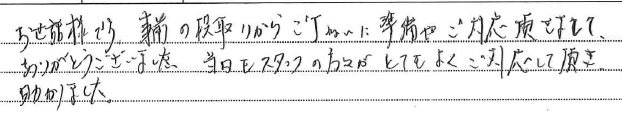 お世話様です。事前の段取りからご丁ねいに準備やご対応頂きまして、
ありがとうございました。当日もスタッフの方々がとてもよくご対応して頂き、
助かりました。